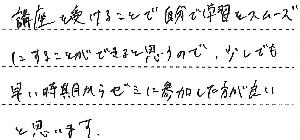 講座を受けることで自分で学習をスムーズ
にすることができると思うので、少しでも
早い時期からゼミに参加した方が良い
と思います.